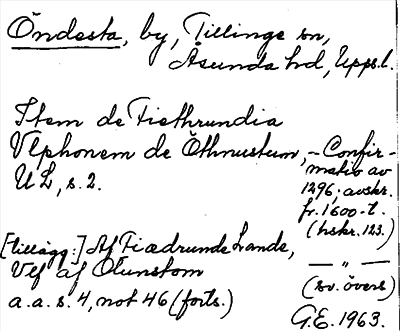 Öndesta, by, Tillinge sn,
Åsunda hd, Upps.l.
Item de Fiethrundia
Vlphonem de Öthnustum, - Confir-
matio av
1296; avskr.
fr. 1600-t.
(hskr. 123.)
UL, s. 2.
[tillägg:] Af Fiædrunde Lande,
Vlf af Ötunstom
— " —
(sv. övers.)
a.a. s. 4, not 46 (forts.)
G.E. 1963.